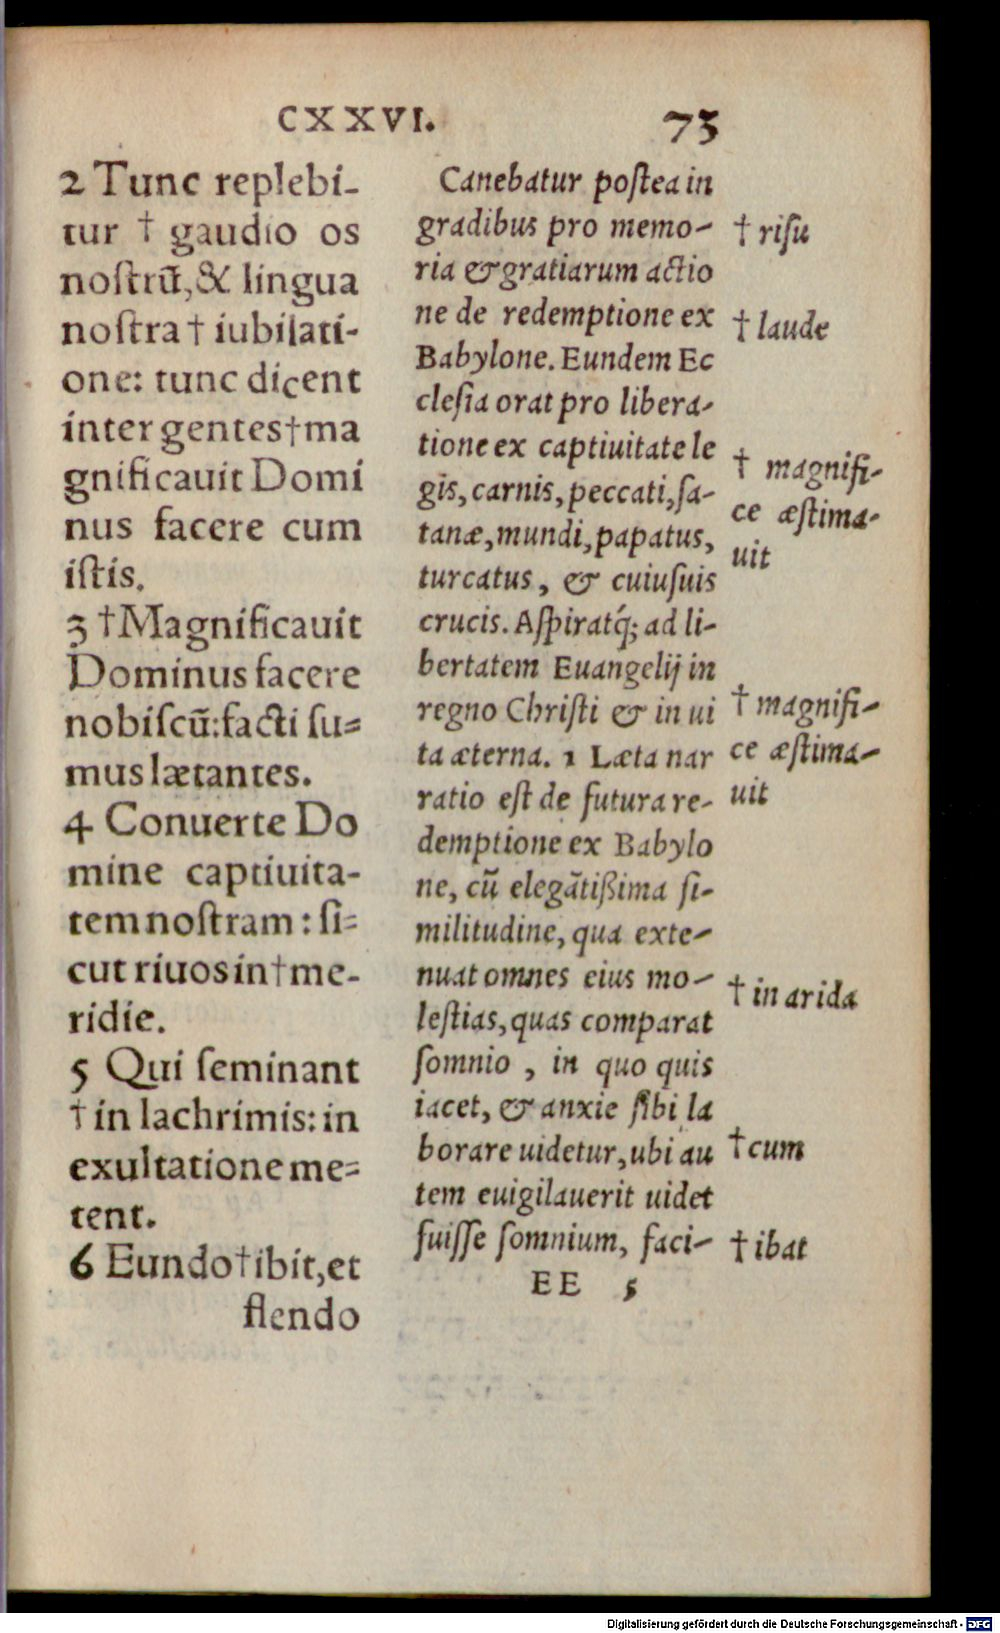 CXXVI. 73
2 Tunc replebi-
tur † gaudio os
noſtrū, & lingua
noſtra † iubilati-
one: tunc dicent
inter gentes † ma
gnificauit Domi
nus facere cum
iſtis.
3 † Magnificauit
Dominus facere
nobiſcū: facti ſu=
mus lætantes.
4 Conuerte Do
mine captiuita-
tem noſtram: ſi=
cut riuos in † me-
ridie.
5 Qui ſeminant
† in lachrimis: in
exultatione me=
tent.
6 Eundo † ibit, et
flendo
Canebatur poſtea in
gradibus pro memo-
ria & gratiarum actio
ne de redemptione ex
Babylone. Eundem Ec
cleſia orat pro libera-
tione ex captiuitate le
gis, carnis, peccati, ſa-
tanæ, mundi, papatus,
turcatus, & cuiuſuis
crucis. Aſpiratq́; ad li-
bertatem Euangelij in
regno Chriſti & in ui
ta æterna. 1 Læta nar
ratio eſt de futura re-
demptione ex Babylo
ne, cū elegātißima ſi-
militudine, qua exte-
nuat omnes eius mo-
leſtias, quas comparat
ſomnio, in quo quis
iacet, & anxie ſibi la
borare uidetur, ubi au
tem euigilauerit uidet
fuiſſe ſomnium, faci-
EE 5
† riſu
† laude
† magnifi-
ce æſtima-
uit
† magnifi-
ce æſtima-
uit
† in arida
† cum
† ibat
Digitalisierung gefördert durch die Deutsche Forschungsgemeinschaft - DFG